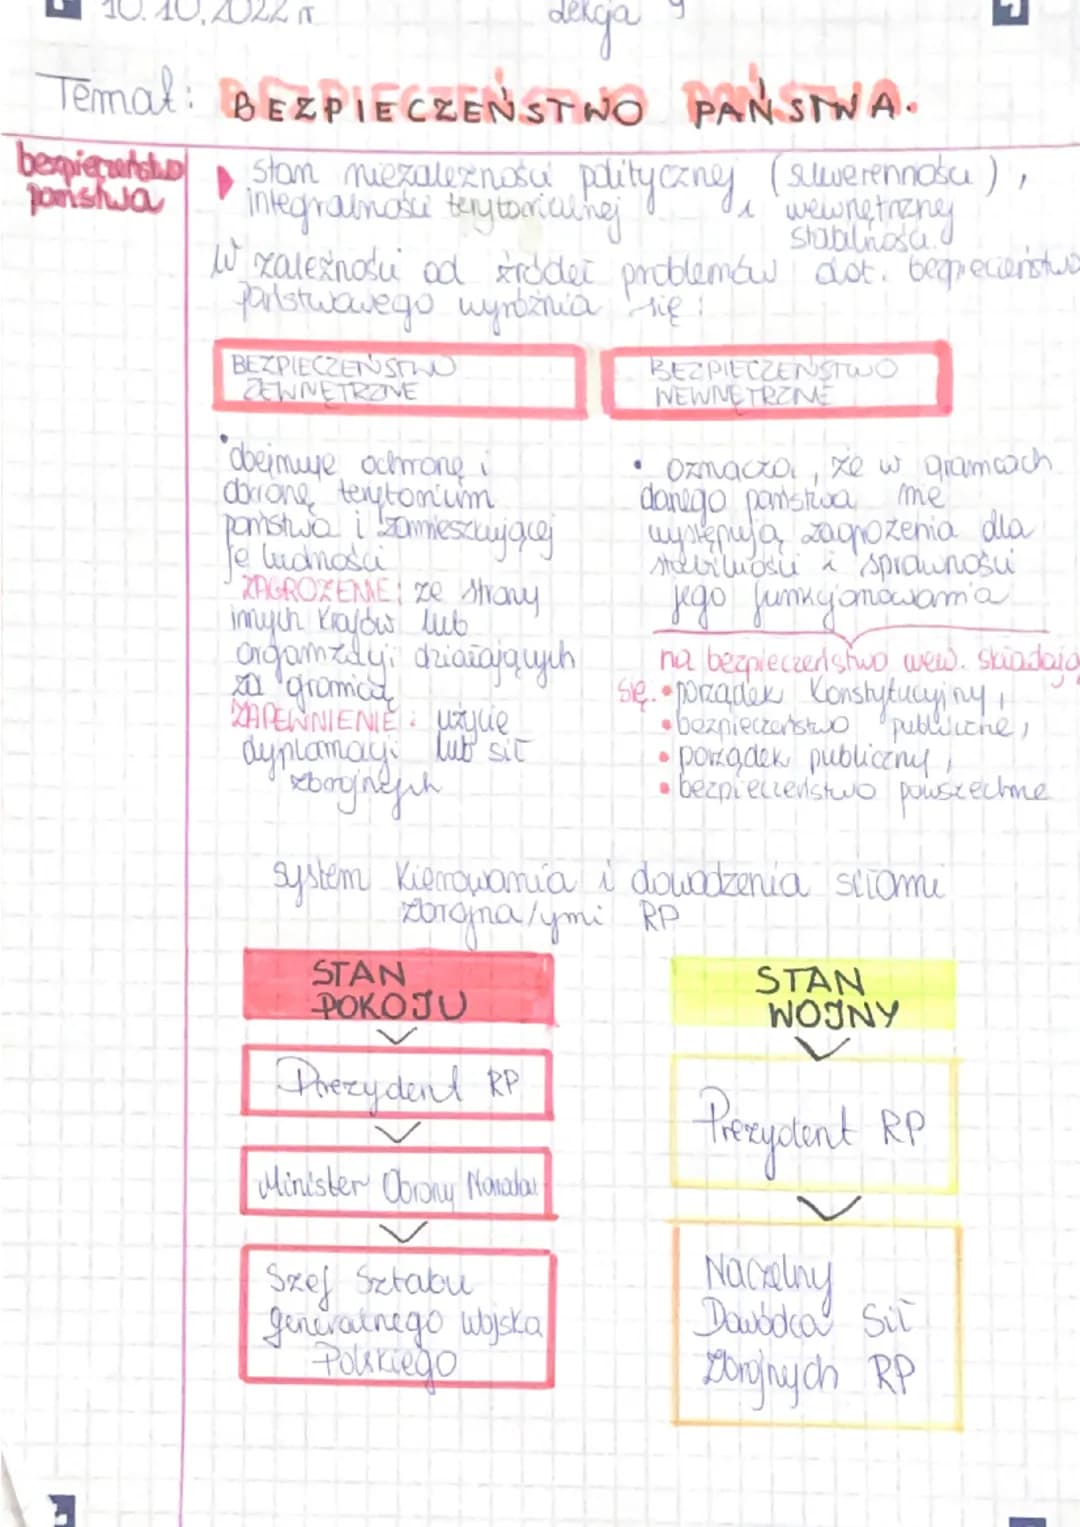 10.10.2022 r
Lekcja
Temat: BEZPIECZEŃSTWO PAŃSTWA.
bezpieczeństwo
państwa
stan niezależności politycznej (suwerenności),
integralności terytorialnej i wewnętrznej
stabilności.
W zależności od źródeł problemów dot. bezpieczeństwa
państwowego wyróżnia się:
BEZPIECZEŃSTWO
ZEWNĘTRZNE
•obejmuje ochronę i
obronę terytorium
państwa i zamieszkującej
je ludności
ZAGROŻENIE: ze strony
innych krajów lub
organizacji działających
za granicą
ZAPEWNIENIE: użycie
dyplomacji lub sił
zbrojnych
BEZPIECZEŃSTWO
WEWNĘTRZNE
• oznacza, że w granicach
danego państwa nie
występują zagrożenia dla
stabilności i sprawności
jego funkcjonowania
na bezpieczeństwo wew. składają
się. •porządek Konstytucyjny,
•bezpieczeństwo publiczne,
• porządek publiczny,
•bezpieczeństwo powszechne
system Kierowania i dowodzenia siłami
zbrojna/ymi RP
STAN
POKOJU
Prezydent RP
Minister Obrony Narodow
Szef Sztabu
generalnego Wojska
Polskiego
STAN
WOJNY
Prezydent RP
Naczelny
Dowódca Sił
Zbrojnych RP